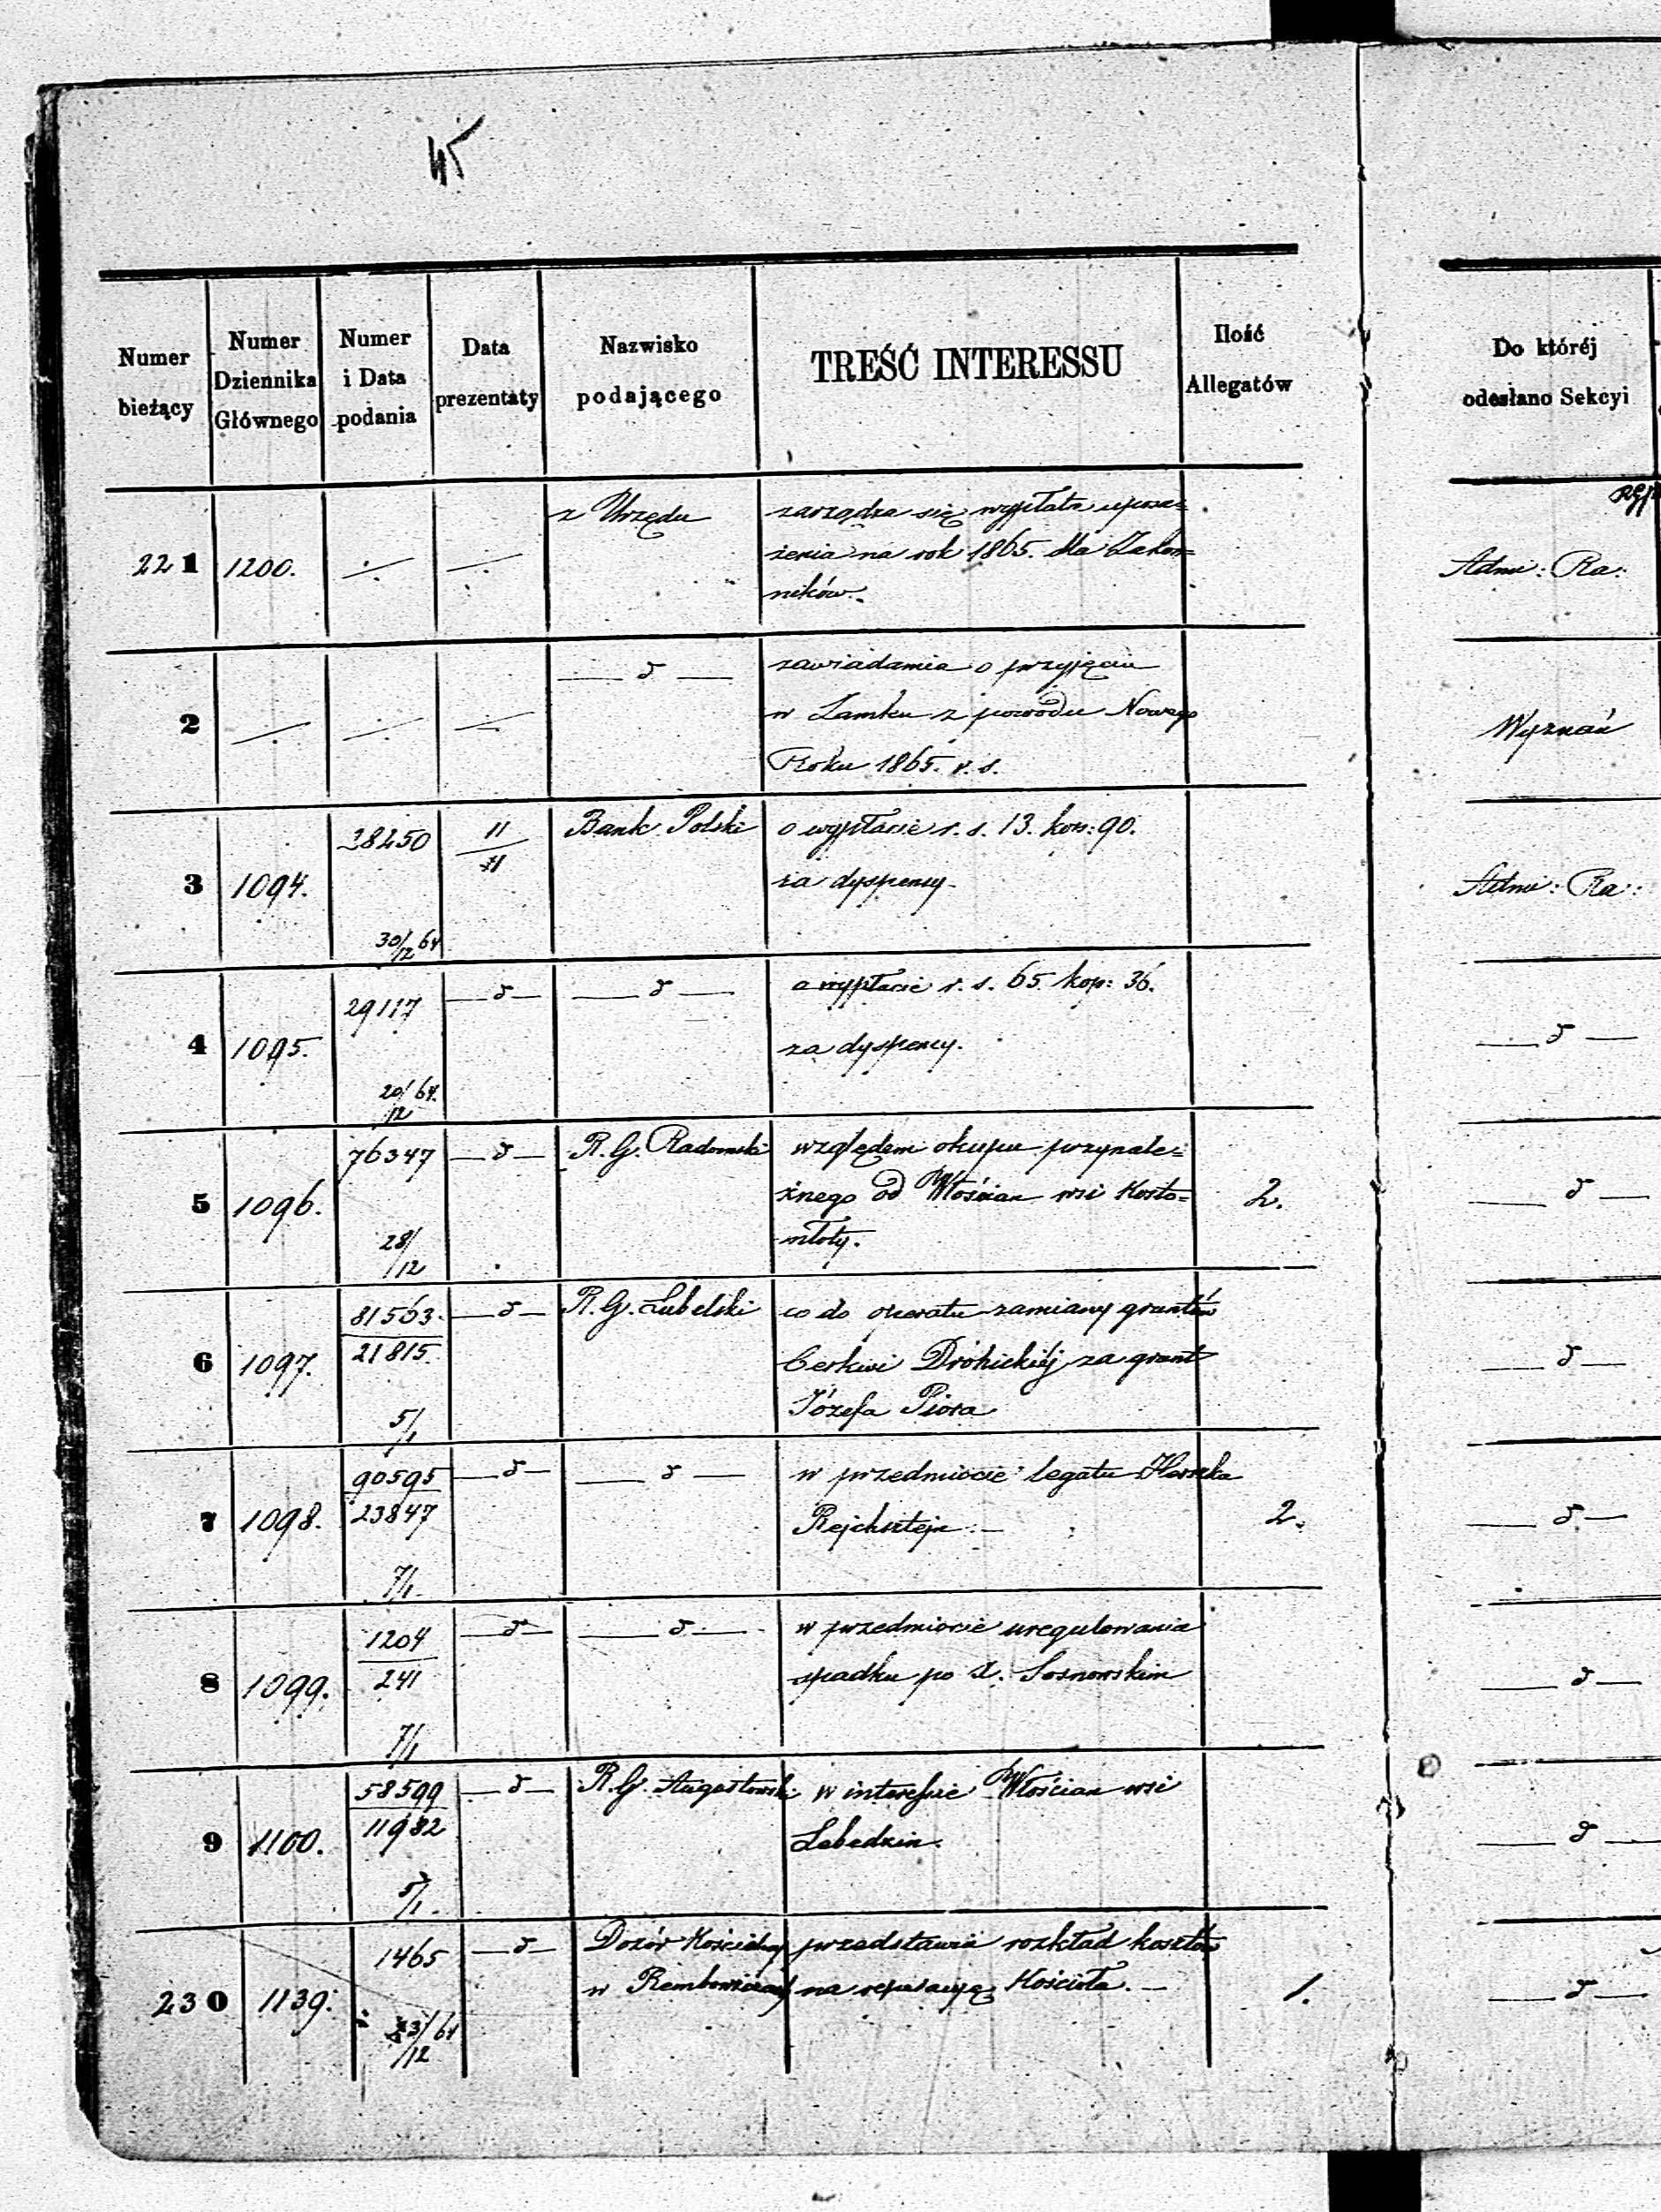 45
Numer bieżący
Numer Dziennika Głównego
Numer i Data podania
Data prezentaty
Nazwisko podającego
TREŚĆ INTERESSU
Ilość Allegatów
Do któréj odesłano Sekcyi
221 1200. z Urzędu zarządza się wypłata uposa=
żenia na rok 1865. dla Zakon=
ników.
Admi: Ra:
2 — d — zawiadamia o przyjęciu
w Zamku z powodu Nowego
Roku 1865. v. s.
Wyznań
3 1094. 28450 30/12 64 11/1 Bank Polski o wypłacie r. s. 13. kop: 90.
za dyspensy
Admi: Ra:
4 1095. 29117 20/12 64. — d — — d — o wypłacie r. s. 65. kop: 36.
za dyspensy.
— d —
5 1096. 76347 28/12 — d — R. G. Radomski względem okupu przynale=
żnego od Włościan wsi Kosto=
młoty.
2.
— d —
6 1097. 81563. 21815. 5/1 — d — R. G. Lubelski co do operatu zamiany gruntów
Cerkwi Drohickiéj za grunt
Józefa Pióra
— d —
7 1098. 90595 23847 7/1. — d — — d — w przedmiocie legatu Herszka
Rejchsztejn. —
2.
— d —
8 1099. 1204 241 7/1 — d — — d — w przedmiocie uregulowania
spadku po X. Sosnowskim
— d —
9 1100. 58599 11982 5/1. — d — R. G. Augustowski w interesie Włościan wsi
Lebedzin.
— d —
230 1139. 1465 23/12 64 — d — Dozór Kościelny przedstawia rozkład kosztów
w Rembowicach na reperacyą Kościoła. —
1.
— d —